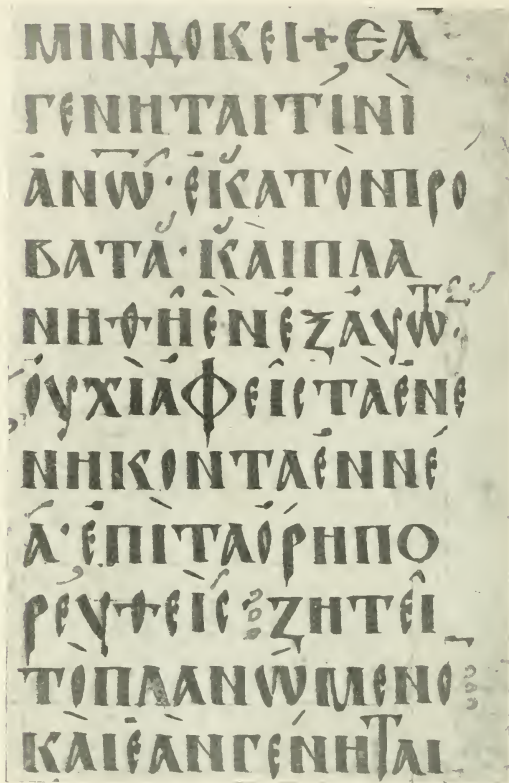 ΜΙΝΔΟΚΕΙ+ΕΑ̅
ΓΕΝΗΤΑΙΤΙΝΙ
ΑΝ̅Ω̅·ΕΚΑΤΟΝΠΡΟ
ΒΑΤΑ·ΚΑΙΠΛΑ
ΝΗΘΗΕΝΕΞΑΥΤΩ̅·
ΟΥΧΙΑΦΕΙϹΤΑΕΝΕ
ΝΗΚΟΝΤΑΕΝΝΕ
Α·ΕΠΙΤΑΟΡΗΠΟ
ΡΕΥΘΕΙϹ·ΖΗΤΕΙ
ΤΟΠΛΑΝΩΜΕΝΟ̅
ΚΑΙΕΑΝΓΕΝΗΤΑΙ